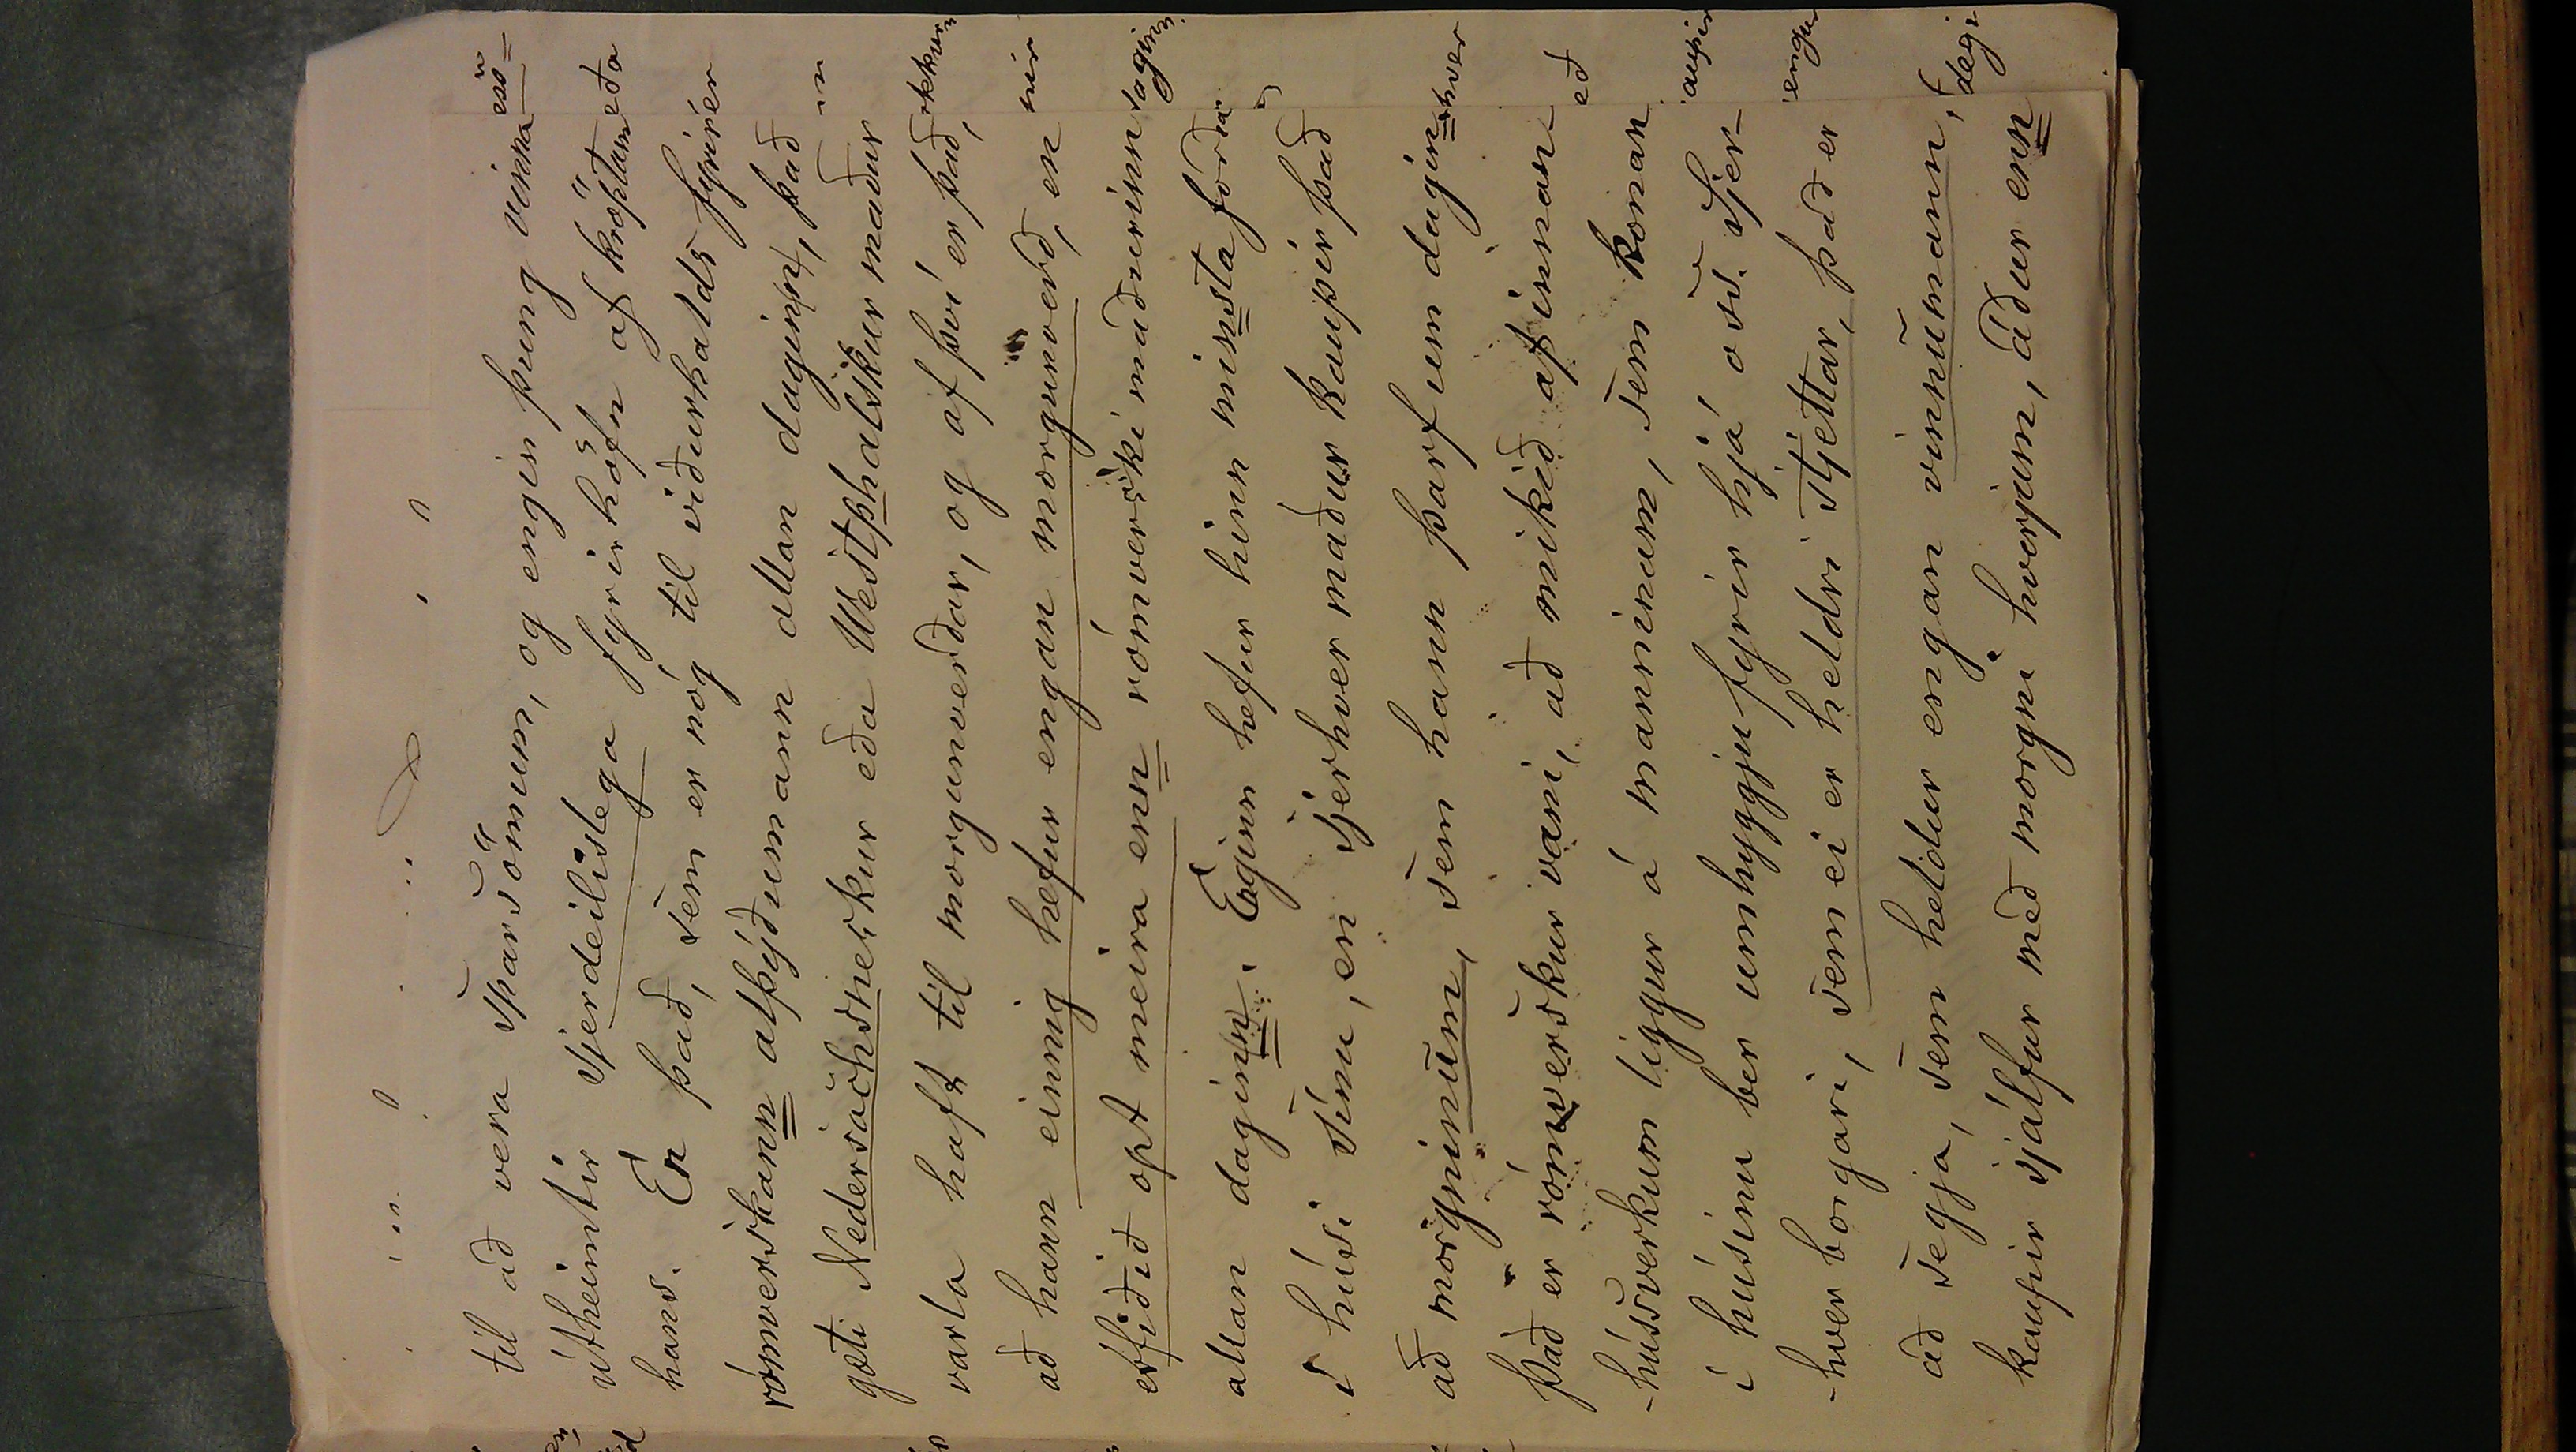 til að vera sparsömum, og engin þung vinna
útheimtir sjerdeilislega fyrirhöfn af kröptum
hans. En það, sem er nóg til viðurhalds fyrir
rómverskann alþýðumann allan daginn, það
gæti Nedersachsneskur eða Westphalskur maður
varla haft til morgunverðar, og af því er það,
að hann einnig hefur engan morgunverð, en
erfiðið opt meira enn rómverski maðurinn
allan daginn. Enginn hefur hinn minsta forða
í húsi sínu, en sjerhver maður kaupir það
að morgninum, sem hann þarf um daginn
Það er rómverskur vani, að mikið af innan
-hússverkum liggur á manninum, sem konan
í húsinu ber umhyggju fyrir hjá oss. Sjer-
-hver borgari, sem ei er heldri stjettar, það er
að segja, sem heldur engan vinnumann,
kaupir sjálfur með morgni hverjum, áður enn